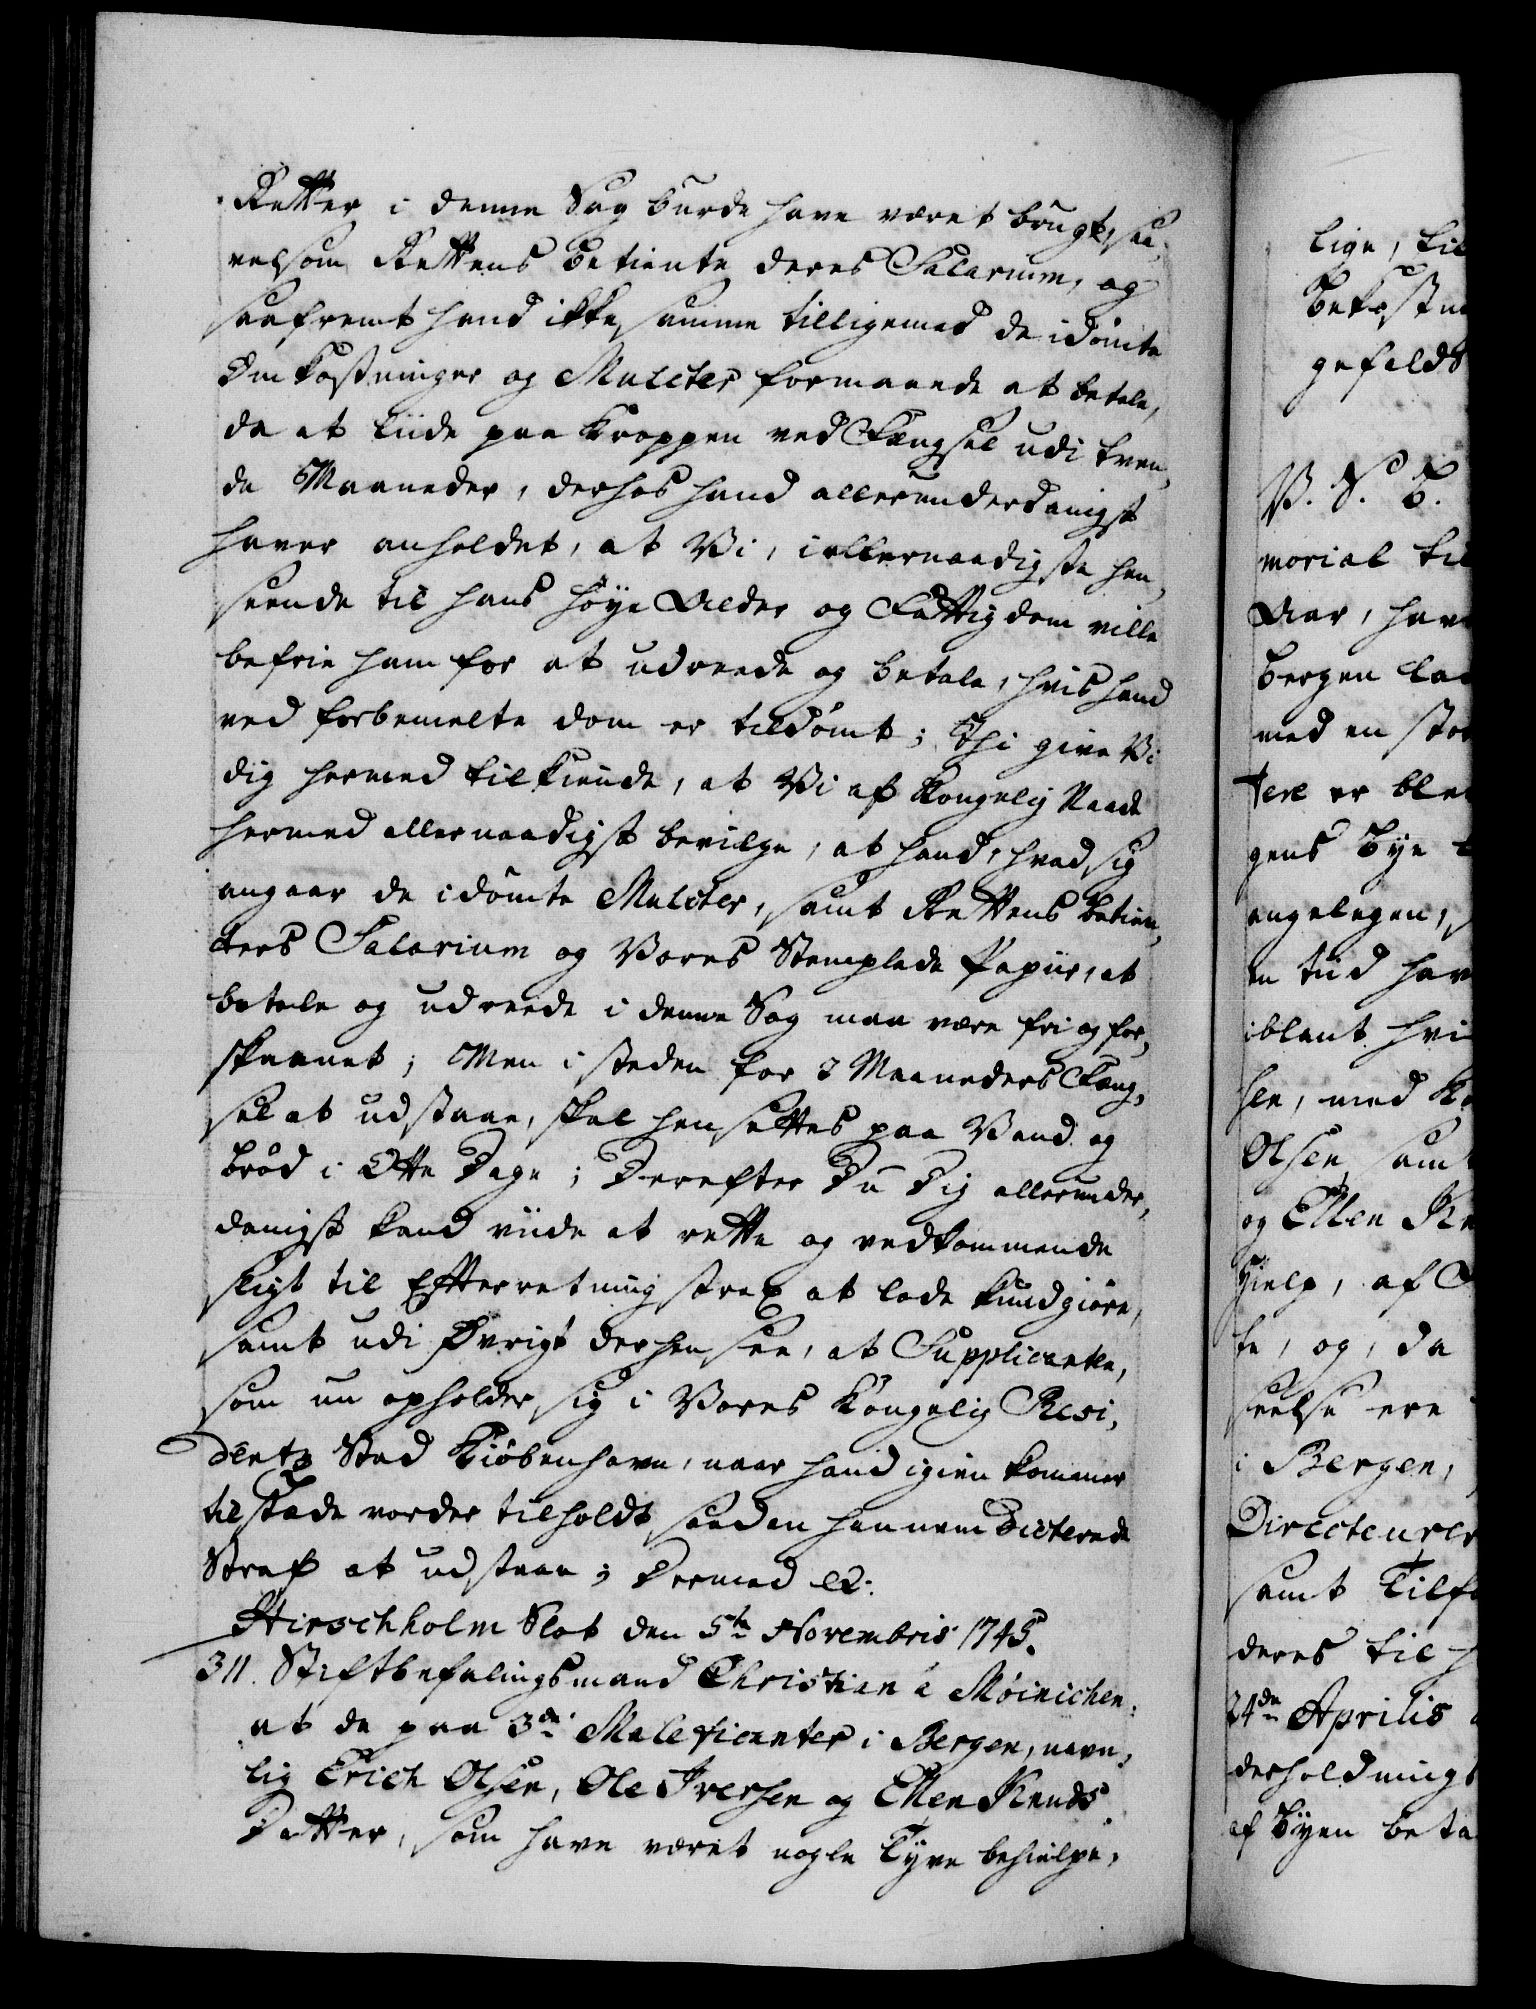 Retter i denne Sag burde have været brugt, saa,
velsom Rettens betiente deres Salarium, og
saafremt hand ikke, samme tilligemed de idømte
Omkostninger og Mulcter formaaede at betale,
da at liide paa kroppen ved Fængsel udi tven,
de Maaneder, derhos hand allerunderdanigst
haver anholdet, at Vi, i allernaadigste hen,
seende til hans høye Alder og Fattigdom ville
befrie ham for at udreede og betale, hvis hand
ved forbemelte dom er tildømt; Thi give Vi
dig hermed tilkiende, at Vi af Kongelig Naade
hermed allernaadigst bevilge, at hand, hvad sig
angaar de idømte Mulcter, samt Rettens betien,
ters Salarium og Vores Stemplede Papiir, at
betale og udreede i denne Sag maa være fri og for,
skaanet; Men i steden for 2 Maaneders Fæng,
sel at udstaae, skal hensettes paa Vand og
brød i Otte Dage; Derefter Du Dig allerunder,
danigst kand viide at rette og vedkommende
sligt til Efterretning strax at lade kundgiøre,
samt udi Øvrigt derhen see, at Supplicanten,
som nu opholder sig i Vores Kongelig Resi,
dentz Stad Kiøbenhavn, naar hand igien kommer
tilstæde vorder tilholdt saadan hannem dicterede
Straf at udstaae; Dermed etc.
Hirschholm Slot den 5te Novembris 1745.
311. Stiftbefalingsmand Christian de Møinichen:
at de paa 3de Maleficanter i Bergen, navn,
lig Erich Olsen, Ole Iversen og Ellen Knuds
Datter, som have været nogle Tyve behielpe,
lige, til
bekostn
gefeldt
V. S. B.
morial til
Aar, hav
Bergen la
med en stor
tere er ble
gens Bye
angelegen, s
en tiid hav
iblant hvi
len, med K
Olsen, samt
og Ellen Kn
hielp, af
te, og, da
seelse ere
i Bergen,
Directeurer
samt Tilf
deres til
24de Aprilis
derholdnings
af Byen beta